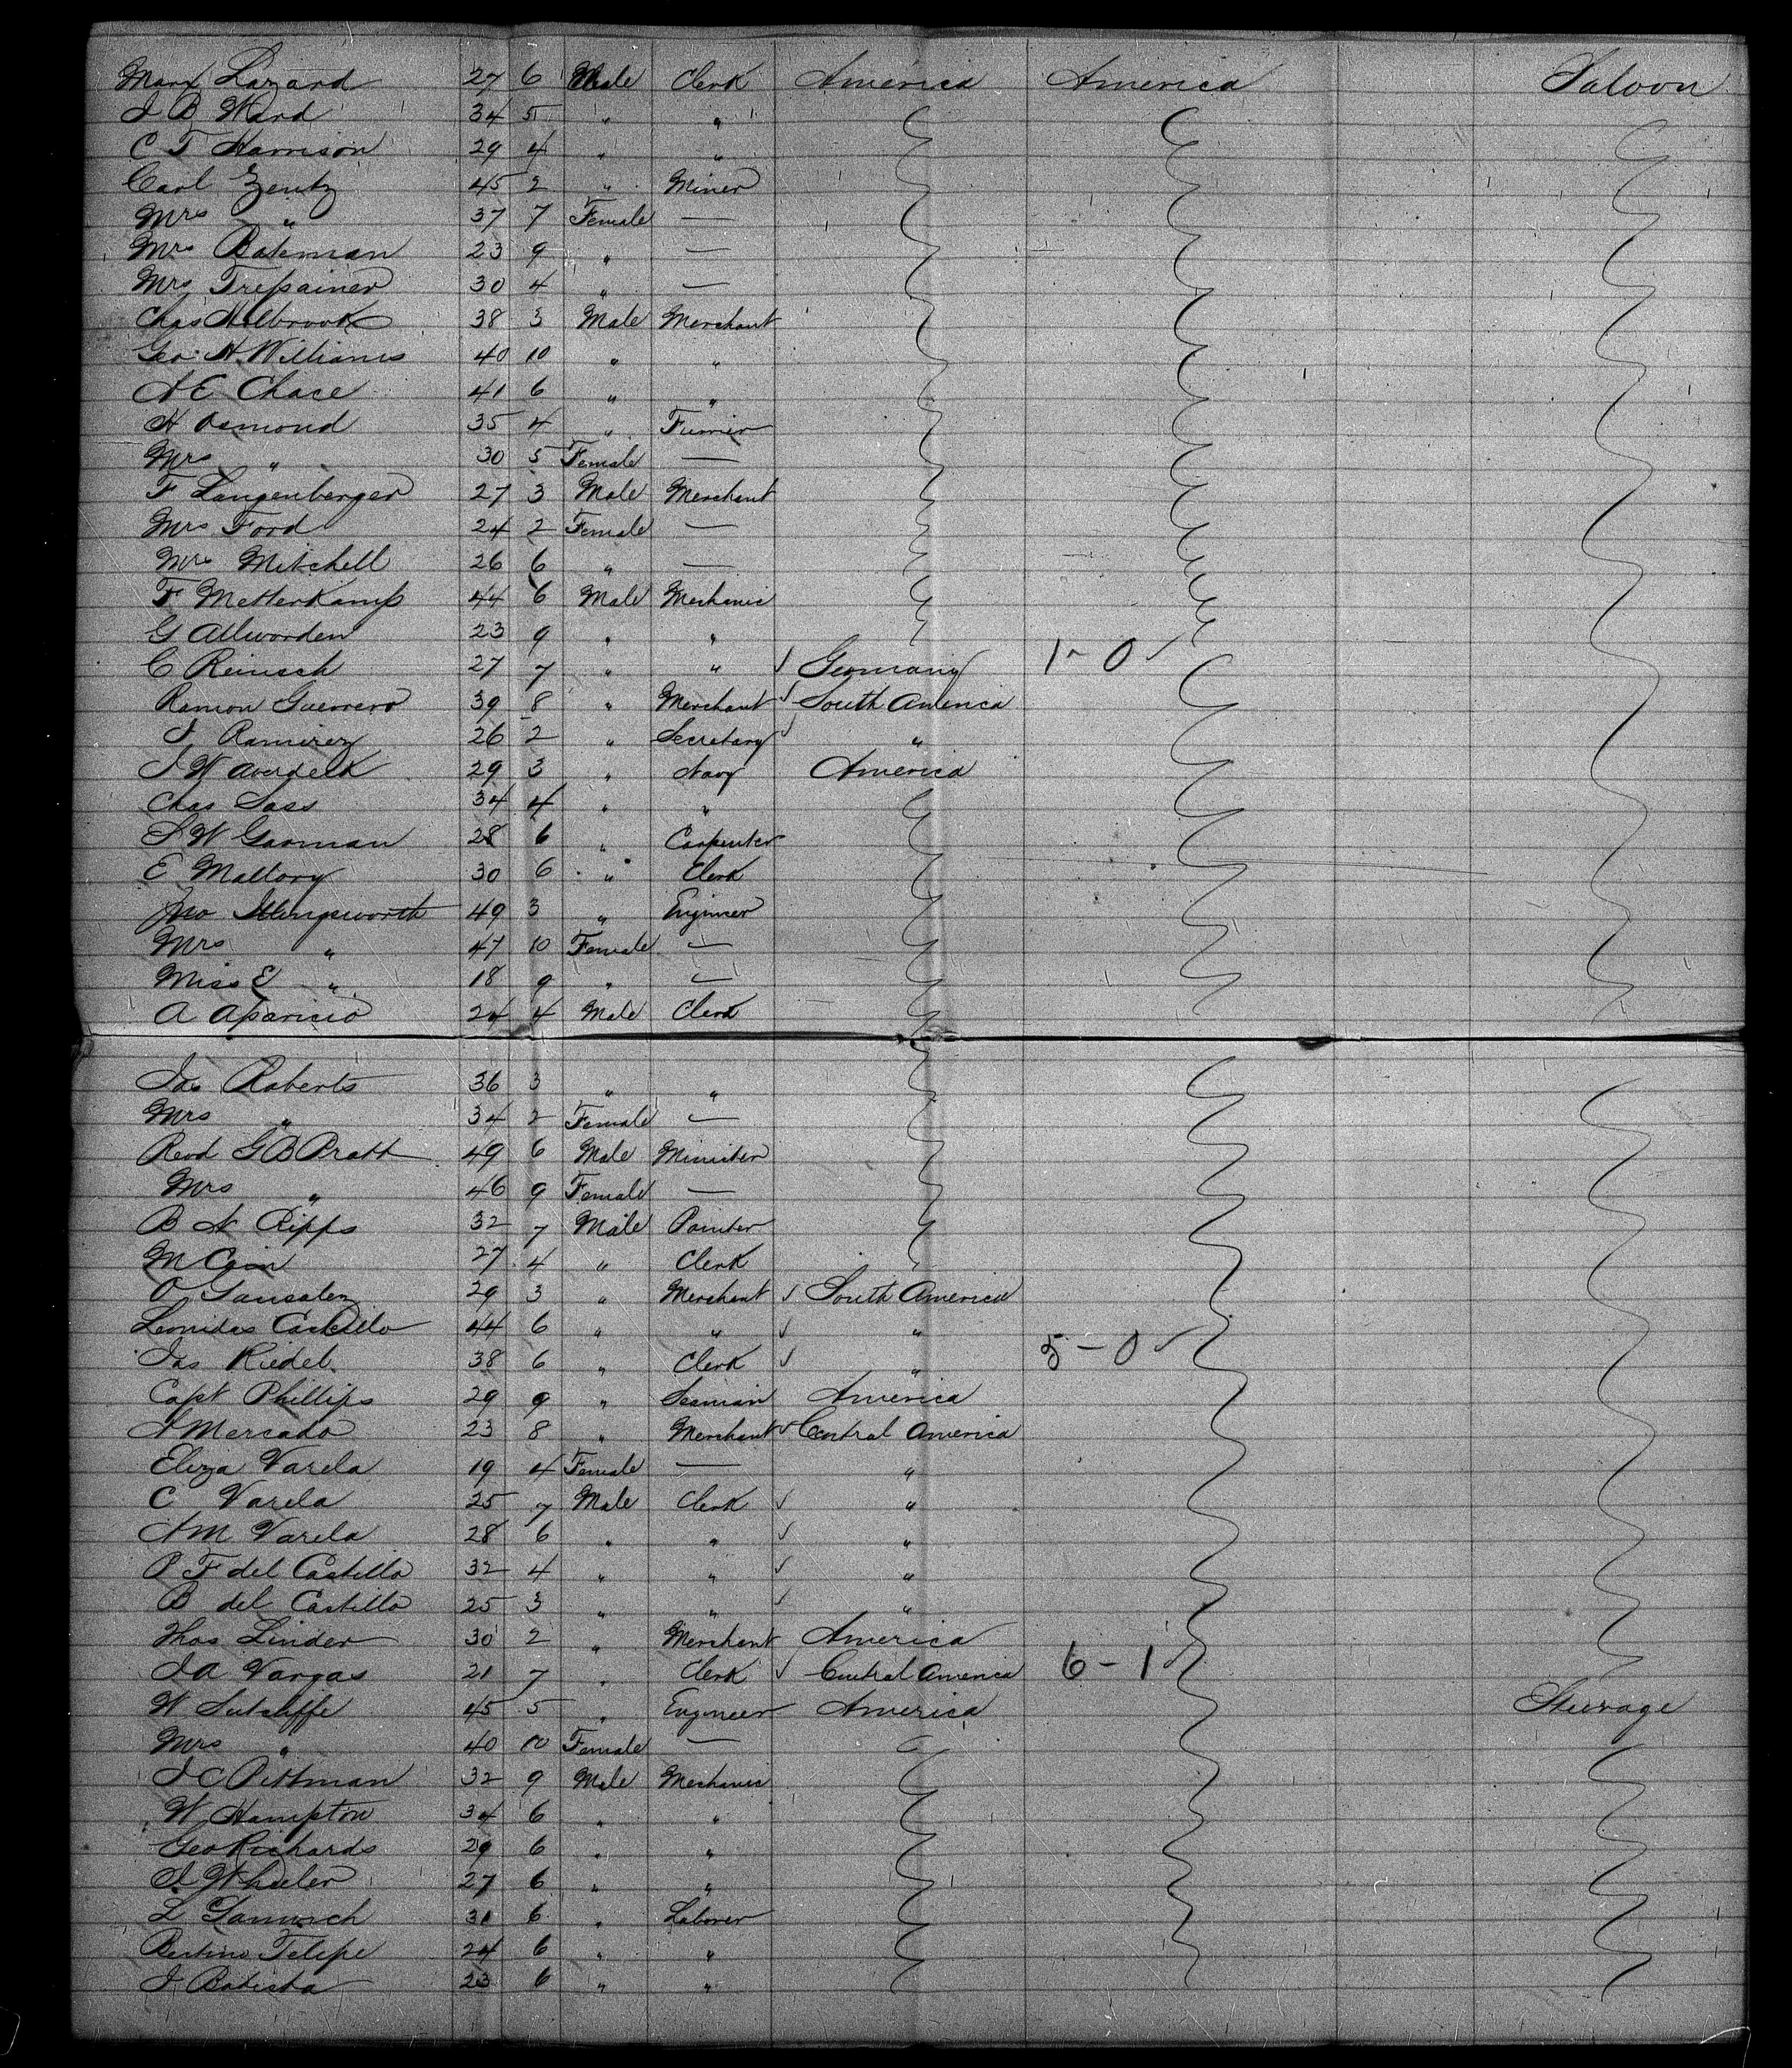 Marx Lazard 27 6 Male Clerk America America Saloon
J B Ward 34 5 " "
C T Harrison 29 4 " "
Carl Zentz 45 2 " Miner
Mrs " 37 7 Female —
Mrs Bateman 23 9 " —
Mrs 30 4 " —
Chas Holbrook 38 3 Male Merchant
Geo. H. Williams 40 10 " "
A E Chace 41 6 " "
H Osmond 35 4 " Furrier
Mrs " 30 5 Female —
F Langenberger 27 3 Male Merchant
Mrs Ford 24 2 Female —
Mrs Mitchell 26 6 " —
F Metterkamp 44 6 Male Mechanic
G Allworden 23 9 " "
C Reinisch 27 7 " " ✓ Germany 1-0 ✓
Ramon Guerrero 39 8 " Merchant ✓ South America
J Ramirez 26 2 " Secretary ✓ "
J W Averdeck 29 3 " Navy America
Chas Sass 34 4 " "
S W Gorman 28 6 " Carpenter
E Mallory 30 6 " Clerk
Jno Illingsworth 49 3 " Engineer
Mrs " 47 10 Female —
Miss E " 18 9 " —
A Aparicio 24 4 Male Clerk
Jas Roberts 36 3 " "
Mrs " 34 2 Female —
Revd G B Pratt 49 6 Male Minister
Mrs " 46 9 Female —
B N Ripps 32 7 Male Painter
M Cain 27 4 " Clerk
O Gansalez 29 3 " Merchant ✓ South America
Leonidas Castillo 44 6 " " ✓ "
Jas Riedel 38 6 " Clerk ✓ " 5-0 ✓
Capt Phillips 29 9 " Seaman America
A Mercado 23 8 " Merchant ✓ Central America
Eliza Varela 19 4 Female — "
C Varela 25 7 Male Clerk ✓ "
A M Varela 28 6 " " ✓ "
P F del Castillo 32 4 " " ✓ "
B del Castillo 25 3 " " ✓ "
Thos Linder 30 2 " Merchant America
J A Vargas 21 7 " Clerk ✓ Central America 6-1 ✓
W Sutcliffe 45 5 " Engineer America Steerage
Mrs " 40 10 Female —
J C Pittman 32 9 Male Mechanic
W Hampton 34 6 " "
Geo Richards 29 6 " "
J Wheeler 27 6 " "
L 31 6 " Laborer
Bertino Felipe 24 6 " "
J Batista 23 6 " "